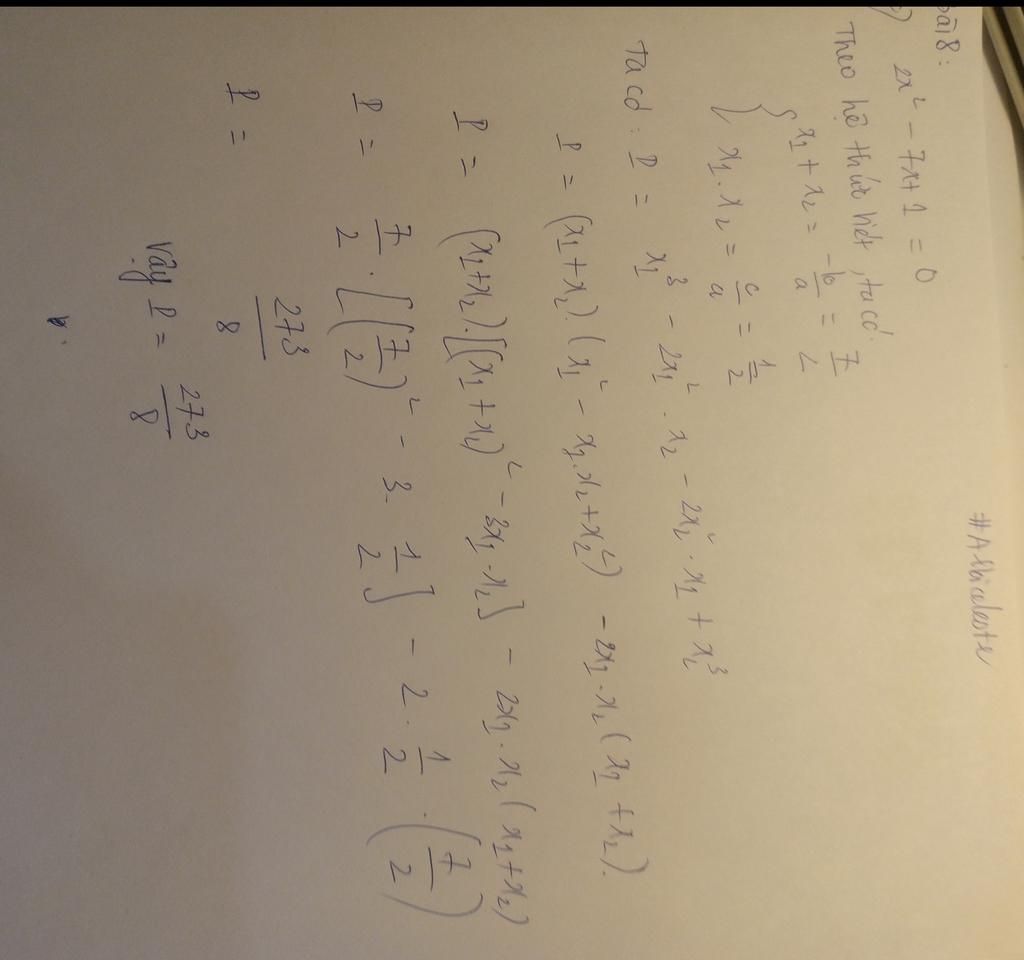 #Albiceleste
Bài 8:
2x² - 7x + 1 = 0
Theo hệ thức Viet, ta có:
{ x₁ + x₂ = -b/a = 7/2
x₁ . x₂ = c/a = 1/2
Ta có: P = x₁³ - 2x₁² . x₂ - 2x₂² . x₁ + x₂³
P = (x₁ + x₂).(x₁² - x₁.x₂ + x₂²) - 2x₁.x₂(x₁ + x₂).
P = (x₁+x₂).[(x₁ + x₂)² - 3x₁.x₂] - 2x₁.x₂(x₁+x₂)
P = 7/2 . [(7/2)² - 3. 1/2] - 2 . 1/2 . (7/2)
P = 273/8
Vậy P = 273/8